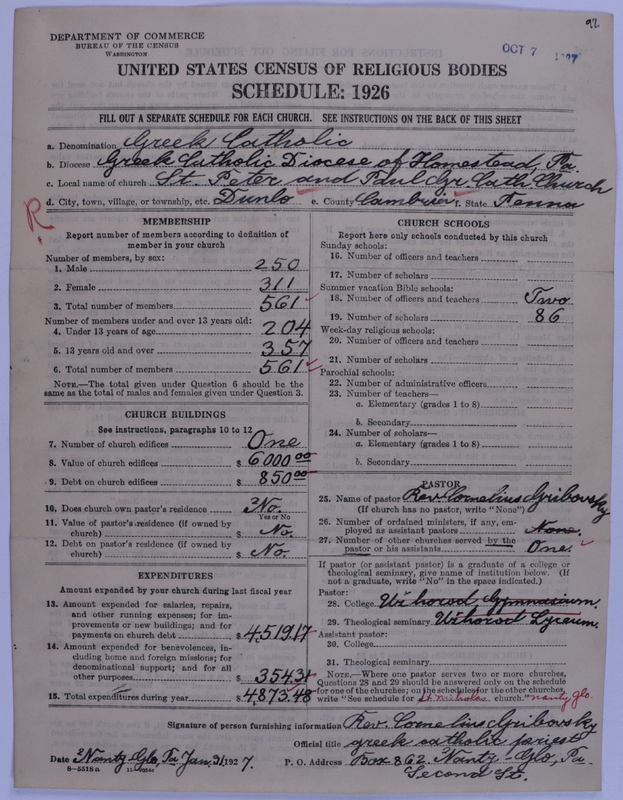 92.
DEPARTMENT OF COMMERCE
BUREAU OF THE CENSUS
WASHINGTON
OCT 7 1927
UNITED STATES CENSUS OF RELIGIOUS BODIES
SCHEDULE: 1926
FILL OUT A SEPARATE SCHEDULE FOR EACH CHURCH. SEE INSTRUCTIONS ON THE BACK OF THIS SHEET
a. Denomination Greek Catholic
b. Diocese Greek Catholic Diocese of Homestead, Pa.
c. Local name of church St. Peter and Paul Gr. Cath. Church
R
d. City, town, village, or township, etc. Dunlo e. County Cambria f. State Penna
MEMBERSHIP
Report number of members according to definition of
member in your church
Number of members, by sex:
1. Male 250
2. Female 311
3. Total number of members 561
Number of members under and over 13 years old:
4. Under 13 years of age 204
5. 13 years old and over 357
6. Total number of members 561
NOTE.—The total given under Question 6 should be
same as the total of males and females given under Question 3.
CHURCH BUILDINGS
See instructions, paragraphs 10 to 12
7. Number of church edifices One
8. Value of church edifices $ 6000 00
9. Debt on church edifices $ 850 00
10. Does church own pastor's residence No.
Yes or No
11. Value of pastor's residence (if owned by
church) $ No.
12. Debt on pastor's residence (if owned by
church) $ No.
EXPENDITURES
Amount expended by your church during last fiscal year
13. Amount expended for salaries, repairs,
and other running expenses; for im-
provements or new buildings; and for
payments on church debt $ 4,519.17
14. Amount expended for benevolences, in-
cluding home and foreign missions; for
denominational support; and for all
other purposes $ 354.31
15. Total expenditures during year $ 4,873.48
CHURCH SCHOOLS
Report here only schools conducted by this church
Sunday schools:
16. Number of officers and teachers
17. Number of scholars
Summer vacation Bible schools:
18. Number of officers and teachers Two
19. Number of scholars 86
Week-day religious schools:
20. Number of officers and teachers
21. Number of scholars
Parochial schools:
22. Number of administrative officers
23. Number of teachers—
a. Elementary (grades 1 to 8)
b. Secondary
24. Number of scholars—
a. Elementary (grades 1 to 8)
b. Secondary
PASTOR
25. Name of pastor Rev. Cornelius Gribovsky
(If church has no pastor, write "None")
26. Number of ordained ministers, if any, em-
ployed as assistant pastors None.
27. Number of other churches served by the
pastor or his assistants One.
If pastor (or assistant pastor) is a graduate of a college or
theological seminary, give name of institution below. (If
not a graduate, write "No" in the space indicated.)
Pastor:
28. College Užhorod, Gymnasium.
29. Theological seminary Užhorod Lyceum.
Assistant pastor:
30. College
31. Theological seminary
NOTE.—Where one pastor serves two or more churches,
Questions 28 and 29 should be answered only on the schedule
for one of the churches; on the schedules for the other churches,
write "See schedule for St Nicholas church." nanty glo.
Signature of person furnishing information Rev. Cornelius Gribovsky
Official title greek catholic priest
Date Nanty-Glo, Pa Jan. 31, 1927. P. O. Address Box 862. Nanty-Glo, Pa.
8—5518 a
Second St.